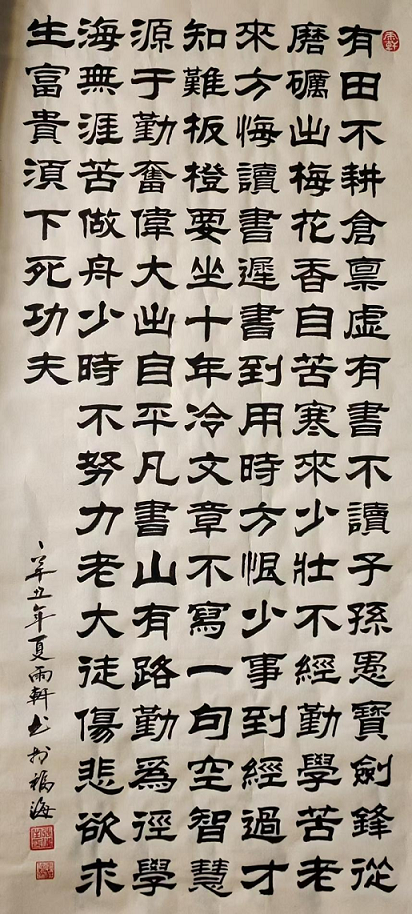 有田不耕倉稟虛有書不讀子孫愚寶劍鋒從
磨礪出梅花香自苦寒來少壯不經勤學苦老
來方悔讀書遲書到用時方恨少事到經過才
知難板橙要坐十年冷文章不寫一句空智慧
源于勤奮偉大出自平凡書山有路勤爲徑學
海無涯苦做舟少時不努力老大徒傷悲欲求
生富貴須下死功夫
辛丑年夏雨軒书於福海